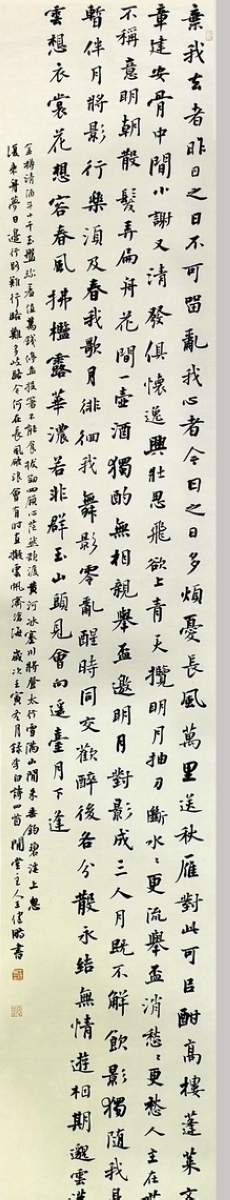 棄我去者昨日之日不可留亂我心者今日之日多煩憂長風萬里送秋雁對此可以酣高樓蓬萊文
章建安骨中間小謝又清發俱懷逸興壯思飛欲上青天攬明月抽刀斷水水更流舉盃消愁愁更愁人生在世
不稱意明朝散髮弄扁舟花間一壺酒獨酌無相親舉盃邀明月對影成三人月既不解飲影獨隨我身
暫伴月將影行樂須及春我歌月徘徊我舞影零亂醒時同交歡醉後各分散永結無情遊相期邈雲漢
雲想衣裳花想容春風拂檻露華濃若非群玉山頭見會向遥臺月下逢
金樽清酒斗十千玉盤珍羞值萬錢停盃投箸不能食拔劍四顧心茫然欲渡黄河冰塞川將登太行雪滿山閒來垂釣碧溪上忽
復乘舟夢日邊行路難行路難多歧路今何在長風破浪會有時直掛雲帆濟滄海 歲次壬寅冬月録李白詩四首 閒堂主人王 書